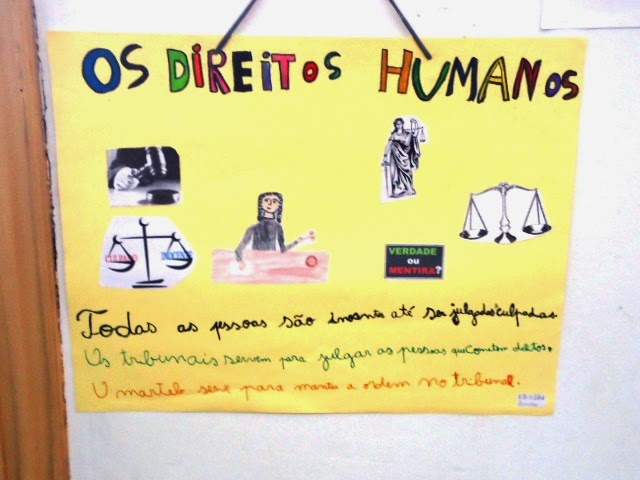 OS DIREITOS HUMANOS
CULPADO INOCENTE
VERDADE
ou
MENTIRA?
Todas as pessoas são inocentes até ser julgadas culpadas.
Os tribunais servem para julgar as pessoas que cometem delitos.
O martelo serve para manter a ordem no tribunal.